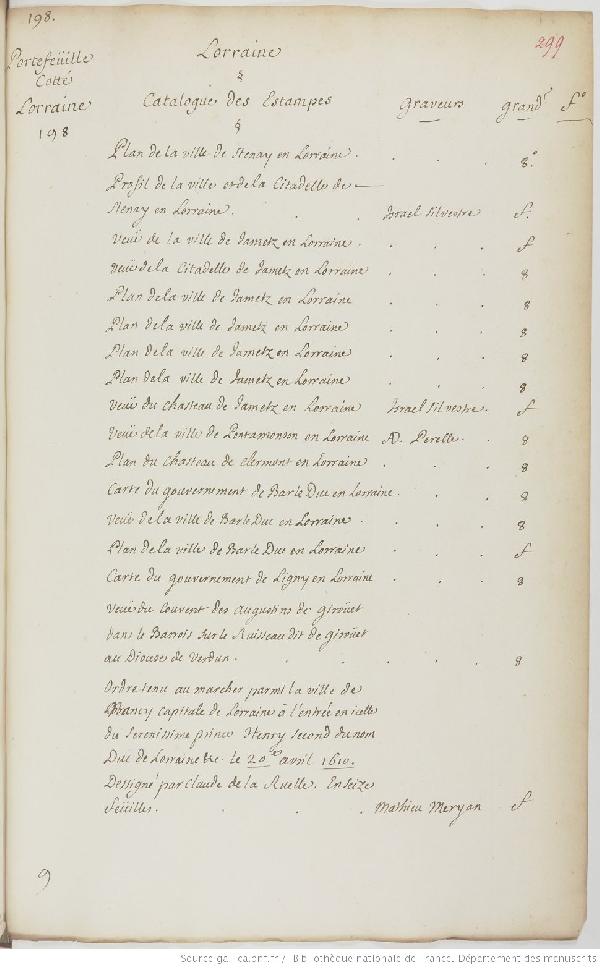 198.
299
Portefeüille
Cotté
Lorraine
198
Lorraine
§
Catalogue des Estampes
§
Graveurs
grandr
fo
Plan de la ville de Stenay en Lorraine . . . 8.o
Profil de la ville et de la Citadelle de —
Stenay en Lorraine. . . Israel Silvestre f.
Veuë de la ville de Jametz en Lorraine . . . . f
Veuë de la Citadelle de Jametz en Lorraine . . . 8
Plan de la ville de Jametz en Lorraine . . . 8
Plan de la ville de Jametz en Lorraine . . . 8
Plan de la ville de Jametz en Lorraine . . . 8
Plan de la ville de Jametz en Lorraine . . . 8
Veuë du chasteau de Jametz en Lorraine Israel Silvestre . f
Veuë de la ville de Pontamonson en Lorraine AD. Perelle . . 8
Plan du chasteau de Clermont en Lorraine . . . 8
Carte du gouvernement de Barle Duc en Lorraine . . . 8
Veuë de la ville de Barle Duc en Lorraine . . . . 8
Plan de la ville de Barle Duc en Lorraine . . . f
Carte du gouvernement de Ligny en Lorraine . . . 8
Veuë du Couvent des Augustins de giroüet
dans le Barrois sur le Ruisseau dit de giroüet
au Diocese de Verdun . . . . . 8
Ordre tenu au marcher parmi la ville de
Nancy capitale de Lorraine à l'entrée en icelle
du Serenissime prince Henry second du nom
Duc de Lorraine &c. le 20 avril 1610.
Dessigné par Claude de la Ruelle. En seize
feüilles. . . . Mathieu Meryan f
9
Source gallica.bnf.fr / Bibliothèque nationale de France. Département des manuscrits